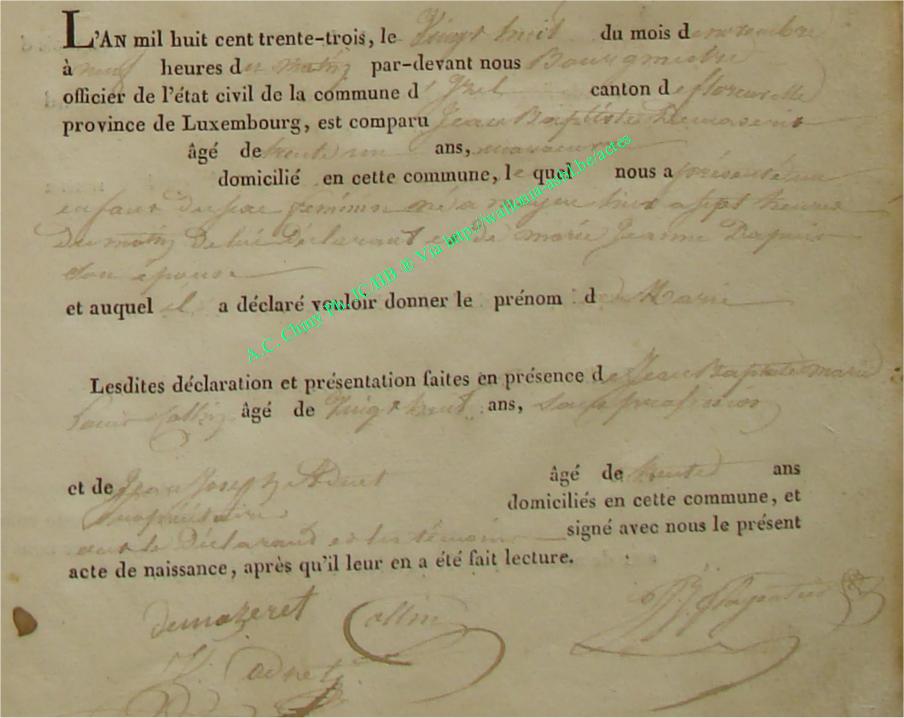 L'AN mil huit cent trente-trois, le Vingt huit du mois de novembre
à neuf heures du matin par-devant nous Bourgmestre
officier de l'état civil de la commune d' canton de florenville
province de Luxembourg, est comparu Jean Baptiste
âgé de trente un ans,
domicilié en cette commune, le quel nous a présenté un
enfant du sexe féminin né à sept heures
du matin de lui Déclarant et de marie Jeanne
son épouse
et auquel il a déclaré vouloir donner le prénom d de Marie
Lesdites déclaration et présentation faites en présence de Jean Baptiste marie
Louis Collin âgé de Vingt huit ans, sans profession
et de Jean Joseph Adnet âgé de trente ans
propriétaire domiciliés en cette commune, et
ont le Déclarant et les témoins signé avec nous le présent
acte de naissance, après qu'il leur en a été fait lecture.
demazeret Collin
adnet
A.C. Chiny Ph. JCHB ® Via http://wallonia-asbl.be/actes